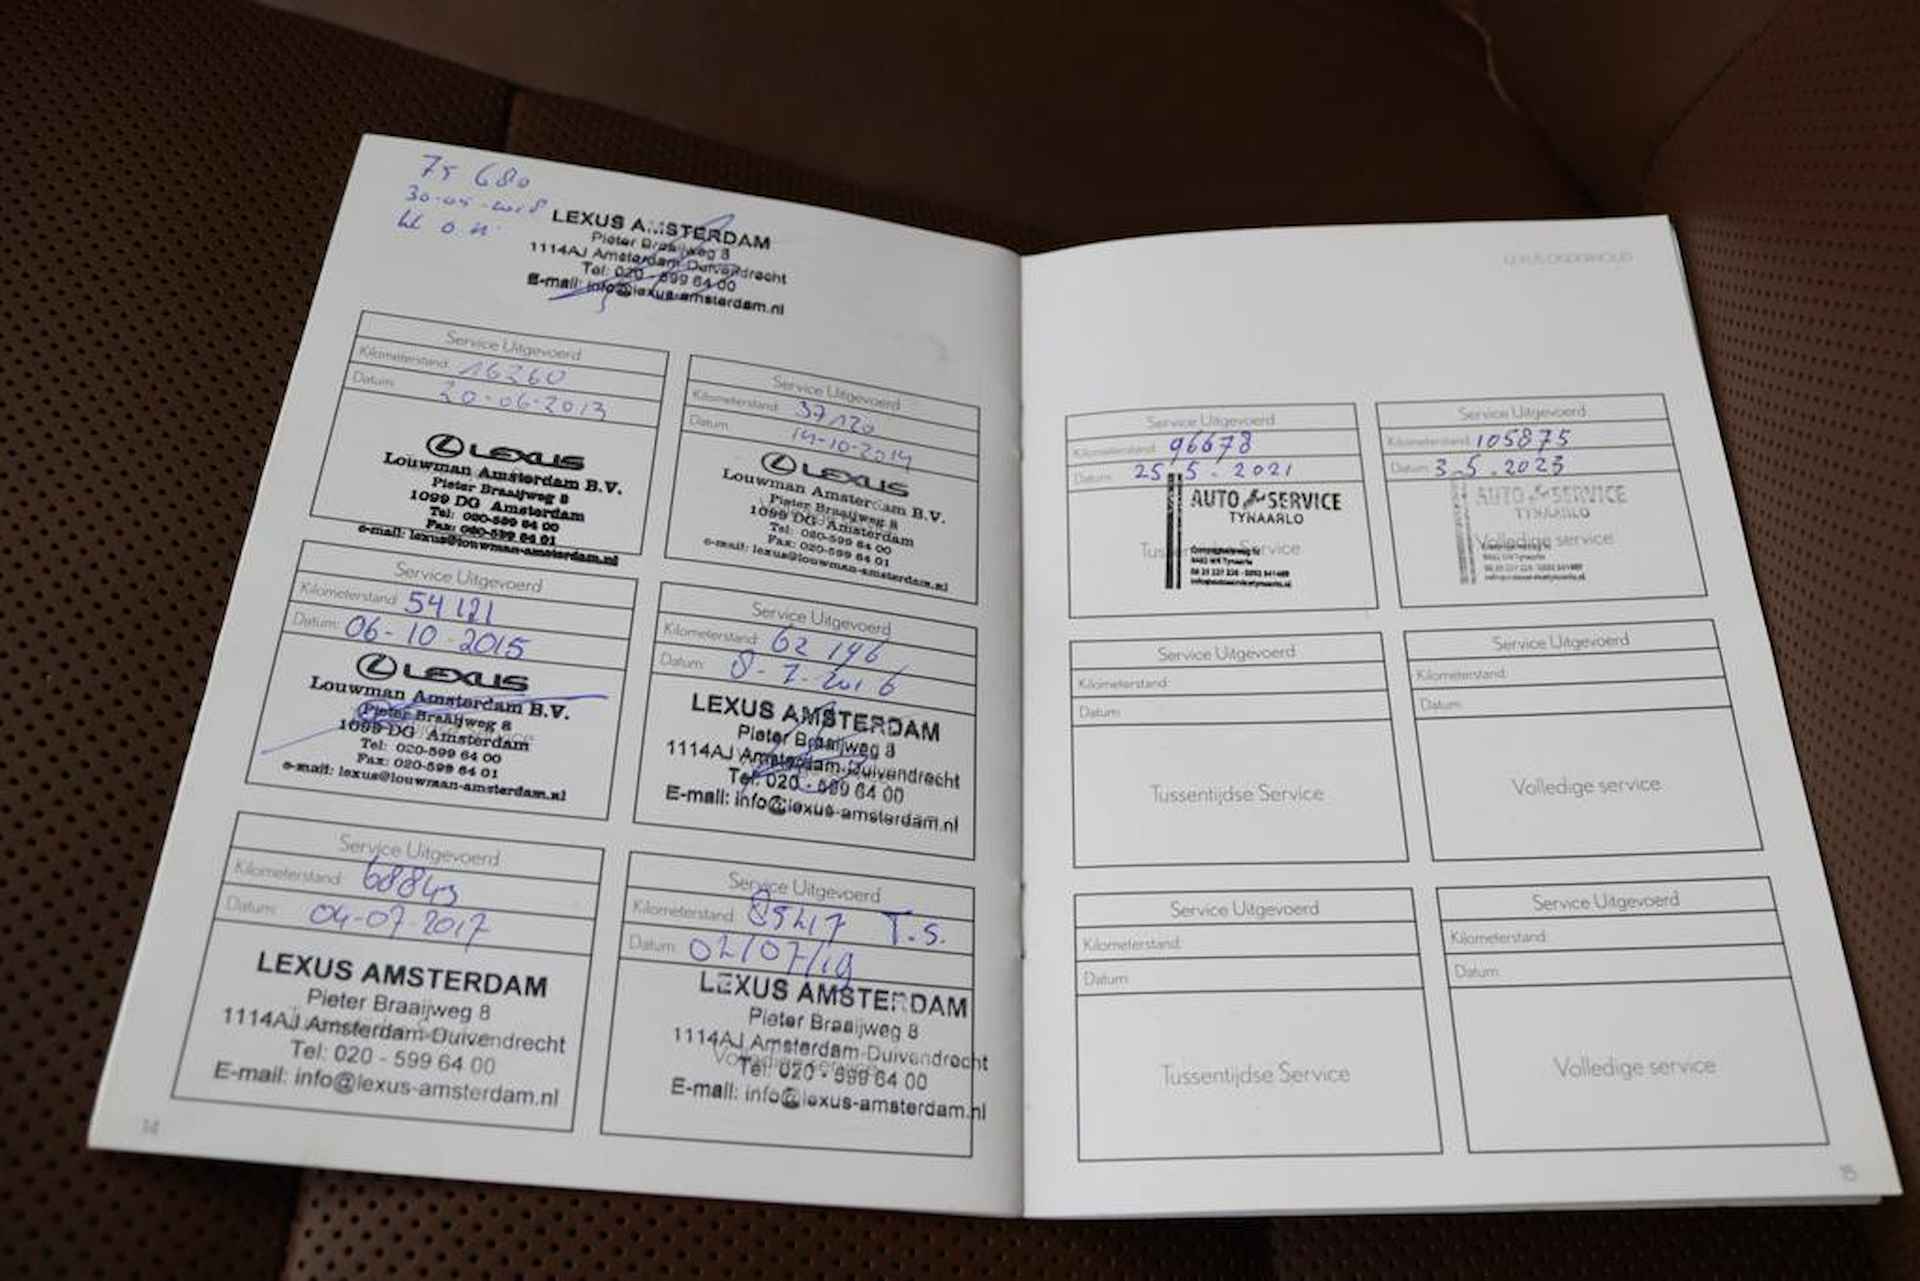 75 680
30-05-2018
LEXUS AMSTERDAM
Pieter Braaijweg 8
1114AJ Amsterdam-Duivendrecht
Tel: 020 - 599 64 00
E-mail: info@lexus-amsterdam.nl
Service Uitgevoerd
Kilometerstand: 16260
Datum: 20-06-2013
LEXUS
Louwman Amsterdam B.V.
Pieter Braaijweg 8
1099 DG Amsterdam
Tel: 020-599 64 00
Fax: 020-599 64 01
e-mail: lexus@louwman-amsterdam.nl
Service Uitgevoerd
Kilometerstand: 37120
Datum: 14-10-2014
LEXUS
Louwman Amsterdam B.V.
Pieter Braaijweg 8
1099 DG Amsterdam
Tel: 020-599 64 00
Fax: 020-599 64 01
e-mail: lexus@louwman-amsterdam.nl
Service Uitgevoerd
Kilometerstand: 54121
Datum: 06-10-2015
LEXUS
Louwman Amsterdam B.V.
Pieter Braaijweg 8
1099 DG Amsterdam
Tel: 020-599 64 00
Fax: 020-599 64 01
e-mail: lexus@louwman-amsterdam.nl
Service Uitgevoerd
Kilometerstand: 62 196
Datum: 8-7-2016
LEXUS AMSTERDAM
Pieter Braaijweg 8
1114AJ Amsterdam-Duivendrecht
Tel: 020 - 599 64 00
E-mail: info@lexus-amsterdam.nl
Service Uitgevoerd
Kilometerstand: 68843
Datum: 04-07-2017
LEXUS AMSTERDAM
Pieter Braaijweg 8
1114AJ Amsterdam-Duivendrecht
Tel: 020 - 599 64 00
E-mail: info@lexus-amsterdam.nl
Service Uitgevoerd
Kilometerstand: 85417 T.S.
Datum: 02/07/19
LEXUS AMSTERDAM
Pieter Braaijweg 8
1114AJ Amsterdam-Duivendrecht
Volledige service
Tel: 020 - 599 64 00
E-mail: info@lexus-amsterdam.nl
14
LEXUS ONDERHOUD
Service Uitgevoerd
Kilometerstand: 96678
Datum: 25-5-2021
AUTO SERVICE
TYNAARLO
Tussentijdse Service
Service Uitgevoerd
Kilometerstand: 105875
Datum: 3-5-2023
AUTO SERVICE
TYNAARLO
Volledige service
Service Uitgevoerd
Kilometerstand:
Datum:
Tussentijdse Service
Service Uitgevoerd
Kilometerstand:
Datum:
Volledige service
Service Uitgevoerd
Kilometerstand:
Datum:
Tussentijdse Service
Service Uitgevoerd
Kilometerstand:
Datum:
Volledige service
15